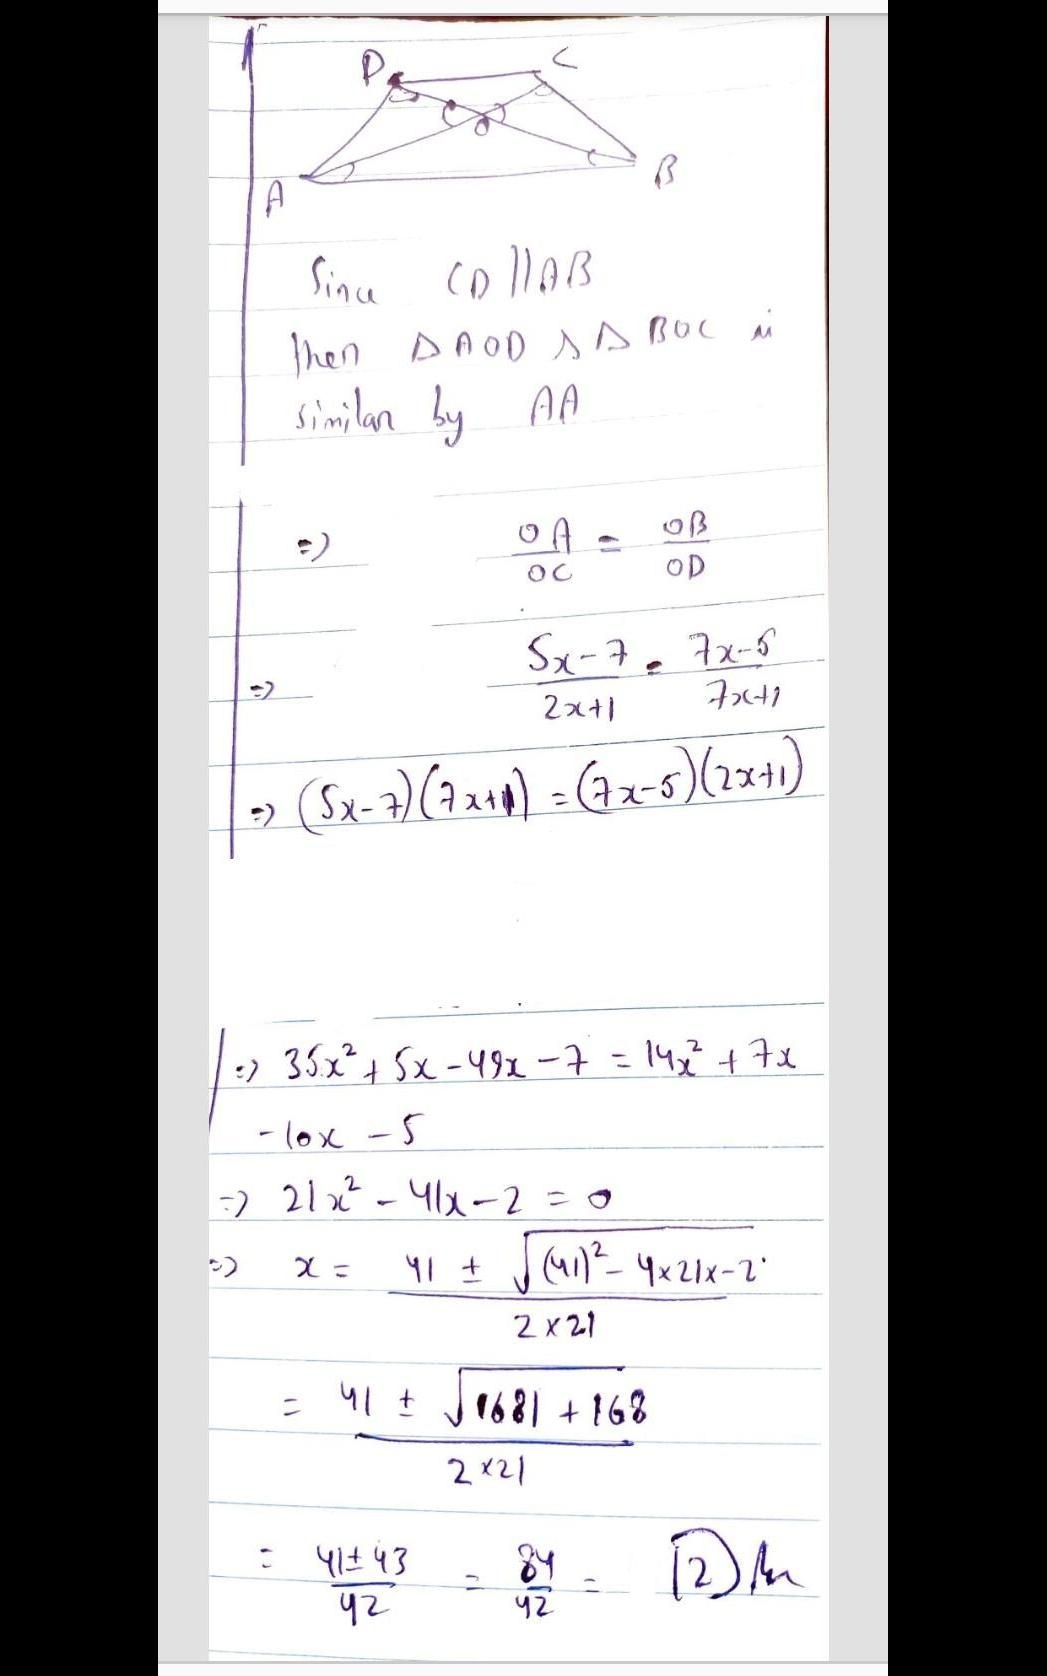 D C
O
A B
Since CD || AB
then △AOD & △BOC is
similar by AA
=> OA/OC = OB/OD
=> 5x-7/2x+1 = 7x-5/7x+1
=> (5x-7)(7x+1) = (7x-5)(2x+1)
=> 35x² + 5x - 49x - 7 = 14x² + 7x
-10x - 5
=> 21x² - 41x - 2 = 0
=> x = 41 ± √(41)² - 4×21×-2 / 2×21
= 41 ± √1681 + 168 / 2×21
= 41±43/42 = 84/42 = 2